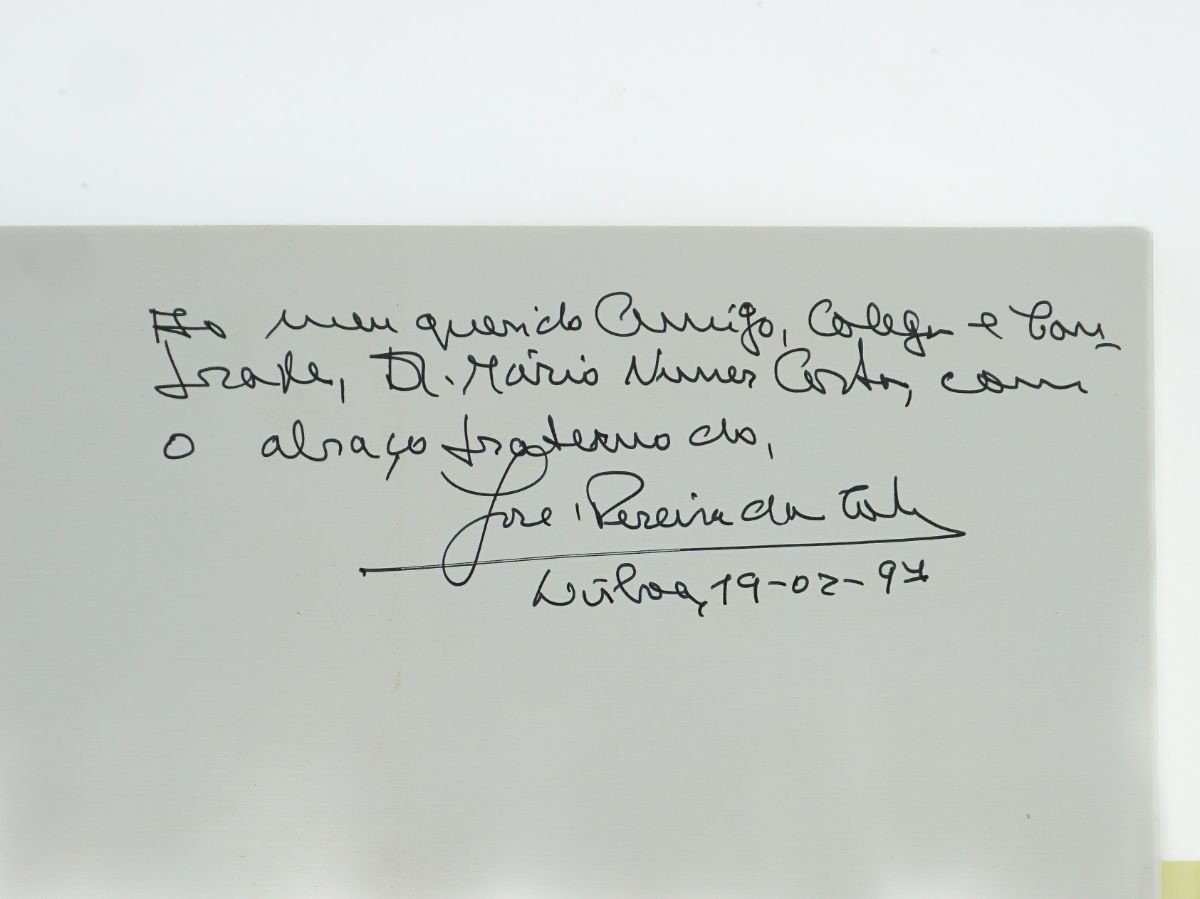 Ao meu querido Amigo, Colega e Con_
frade, Dr. Mário Nunes Costa, com
o abraço fraterno do,
José Pereira da
Lisboa, 19-02-97